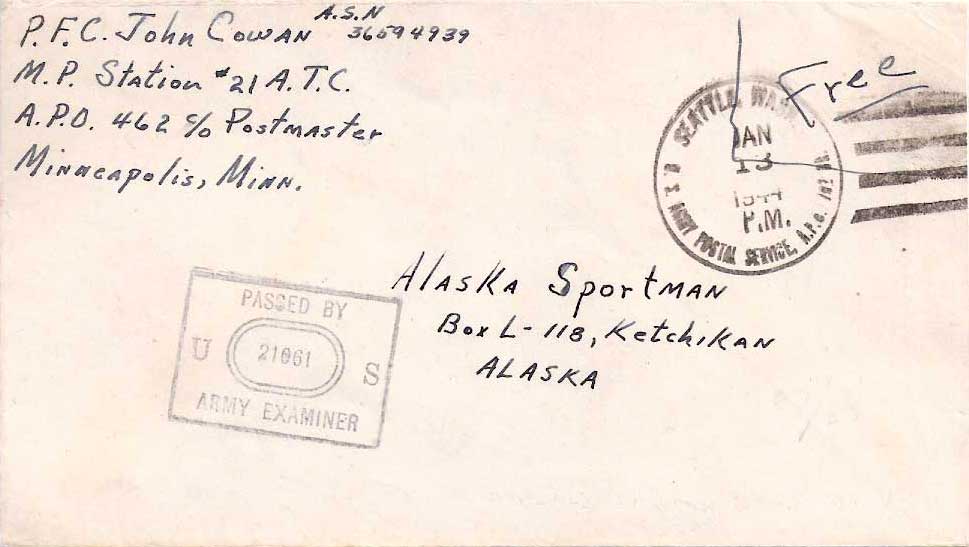 A.S.N
P.F.C. John Cowan 36594939
M.P. Station #21 A.T.C.
A.P.O. 462 c/o Postmaster
Minneapolis, Minn.
Free
SEATTLE, WASH.
JAN
13
1944
P.M.
U.S. ARMY POSTAL SERVICE, A.P.O.
Alaska Sportman
Box L-118, Ketchikan
ALASKA
PASSED BY
U 21061 S
ARMY EXAMINER